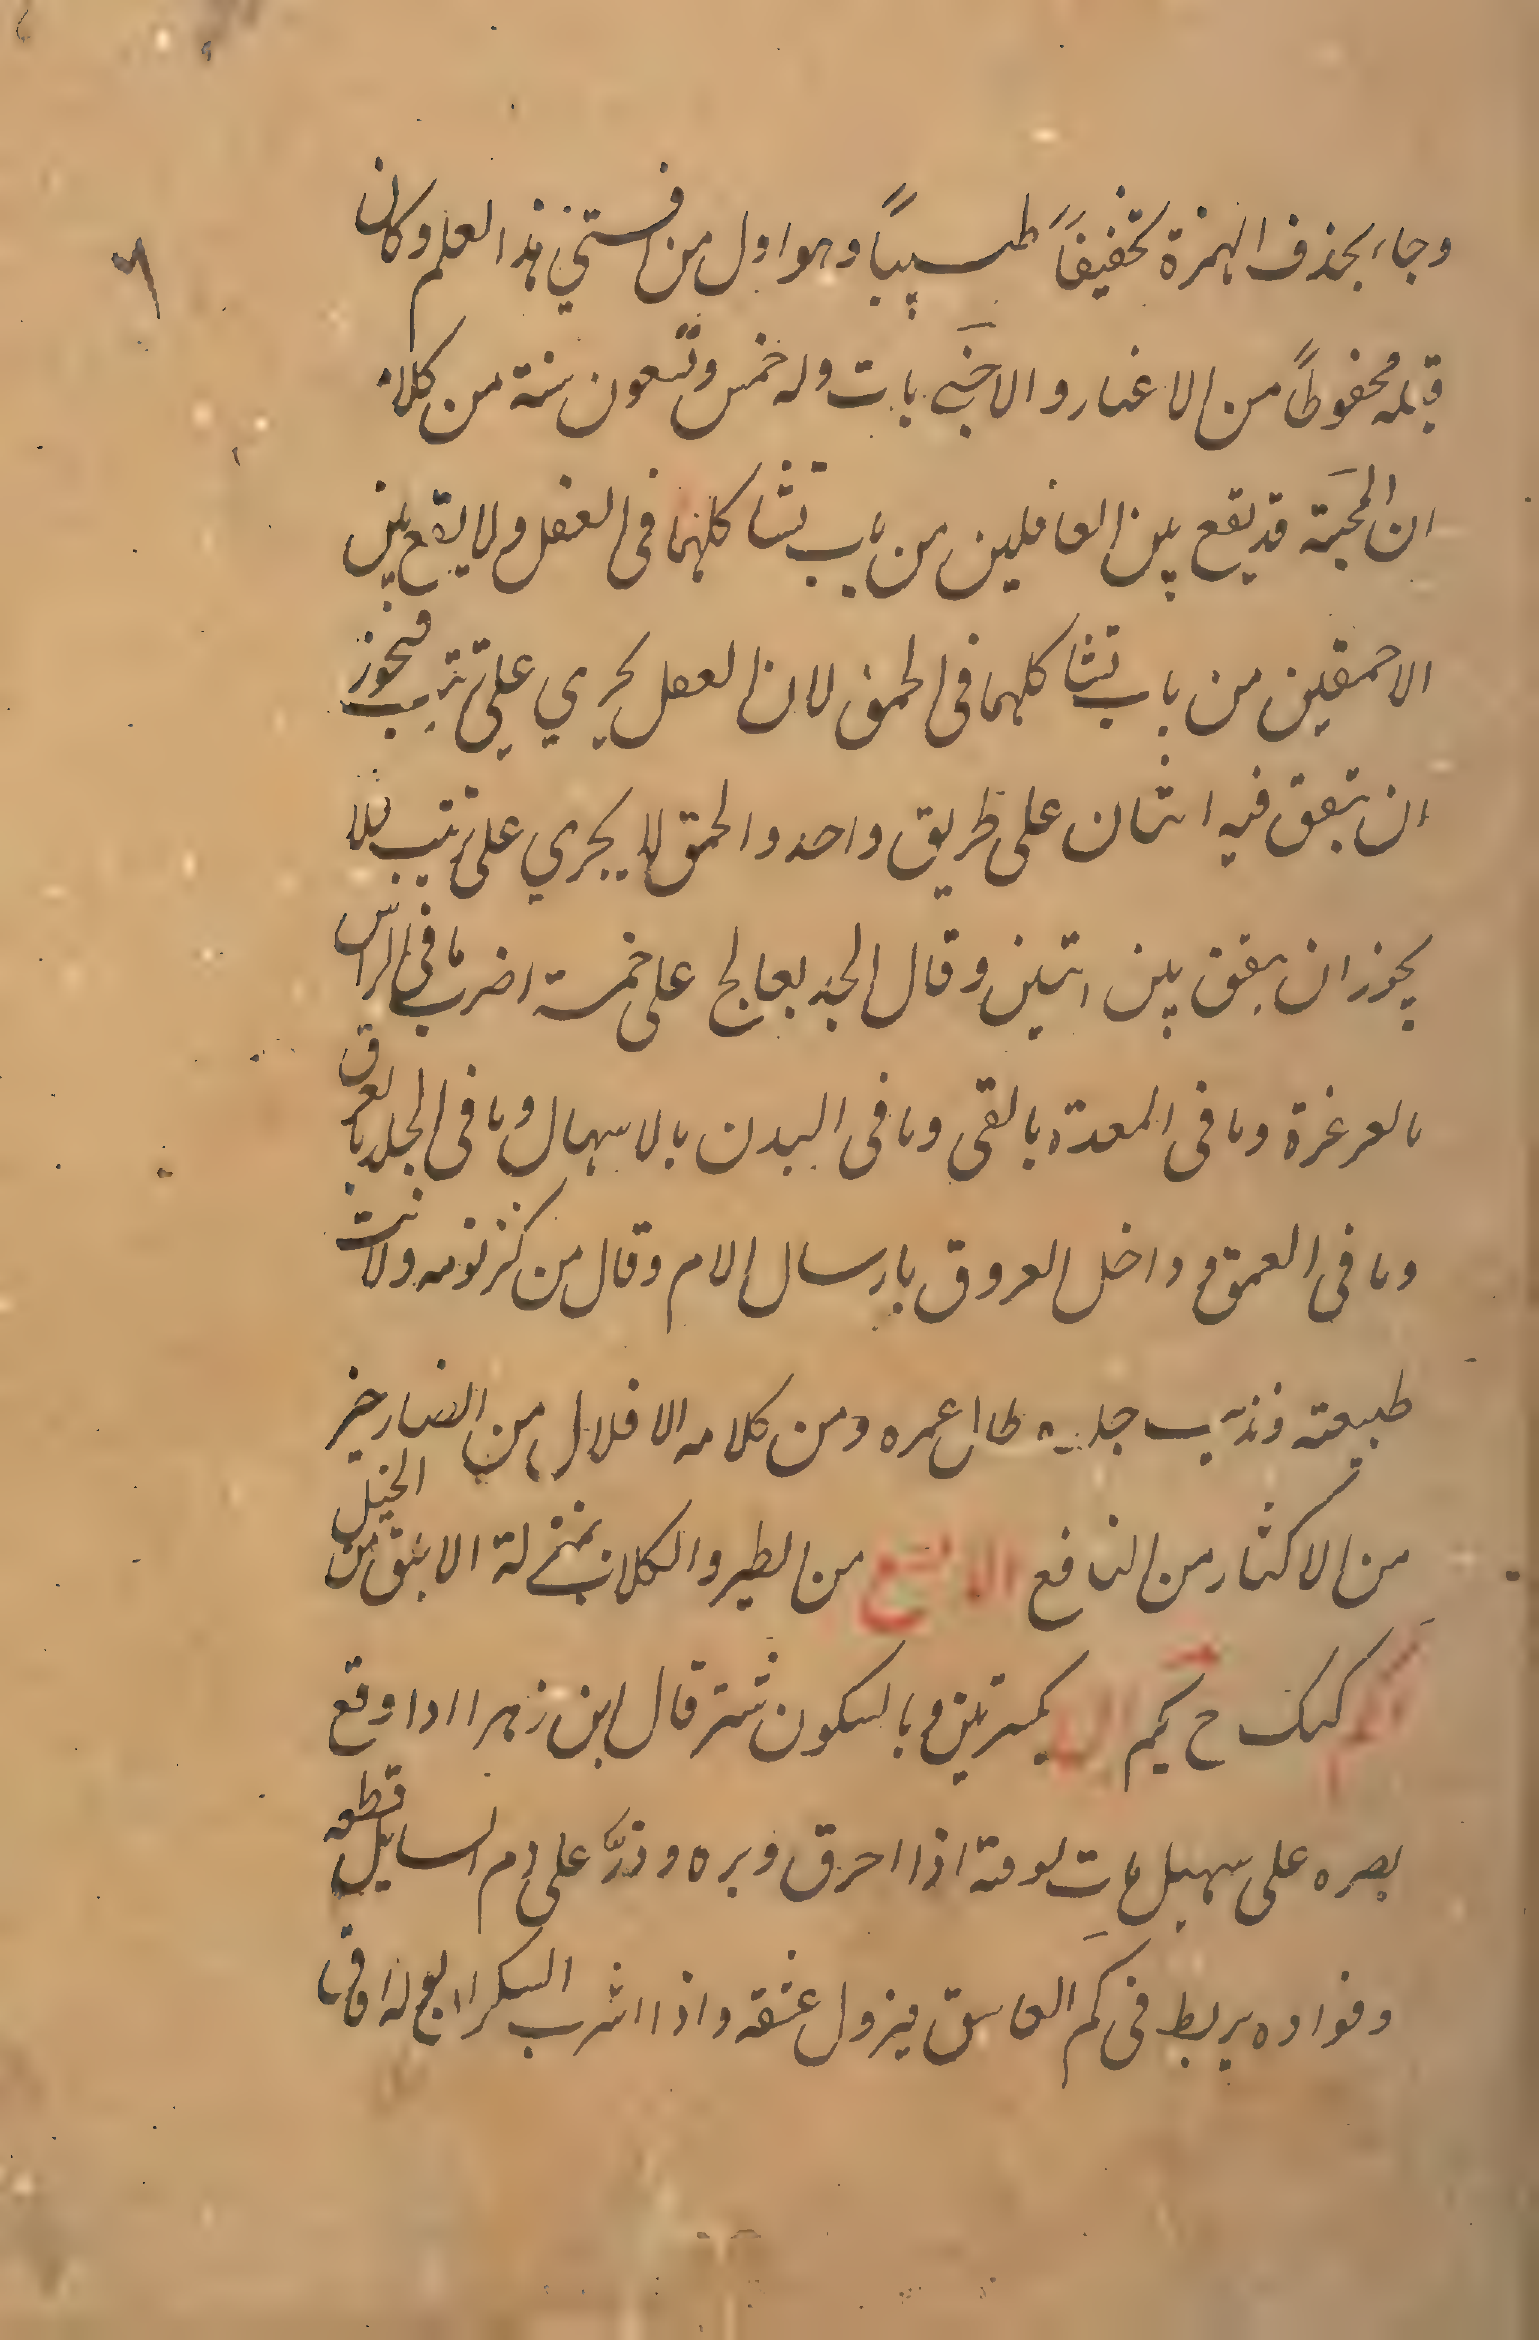 ٦
وجاء بحذف الهمزة تخفيفاً طبيباً وهو اول من افشى هذا العلم وكان
قبله محفوظاً من الاغيار والاجنبى بات وله خمس وتسعون سنة من كلامه
ان المحبة قد يقع بين العاقلين من باب تشاكلهما فى العقل ولا يقع بين
الاحمقين من باب تشاكلهما فى الحمق لان العقل يجري على ترتيب فيجوز
ان يتفق فيه اثنان على طريق واحد والحمق لا يجري على ترتيب فلا
يجوز ان يتفق بين اثنين وقال الجسد يعالج على خمسة اضرب ما فى الراس
بالغرغرة وما فى المعدة بالقى وما فى البدن بالاسهال وما فى الجلد بالعرق
وما فى العمق وداخل العروق بارسال الدم وقال من كثر نومه ولانت
طبيعته ونديت جلده طال عمره ومن كلامه الاقلال من الضار خير
من الاكثار من النافع الابقع من الطير والكلاب بمنزلة الابلق من الخيل
كيك ح يكم الابل بكسرتين وبالسكون شتر قال ابن زهر اذا وقع
بصره على سهيل مات لوقته اذا احرق وبره وذرّ على دم السايل قطعه
وقراده يربط فى كم العاشق فيزول عشقه واذا شرب السكران بوله افاق